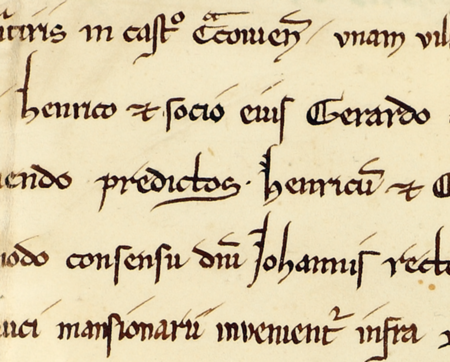 in castͦ unam vil
henrico ⁊ socio eius Gerardo
endo predictos henricū ⁊ G
modo consensu dnī Johannis recto
mansionarii invenientʳ infra